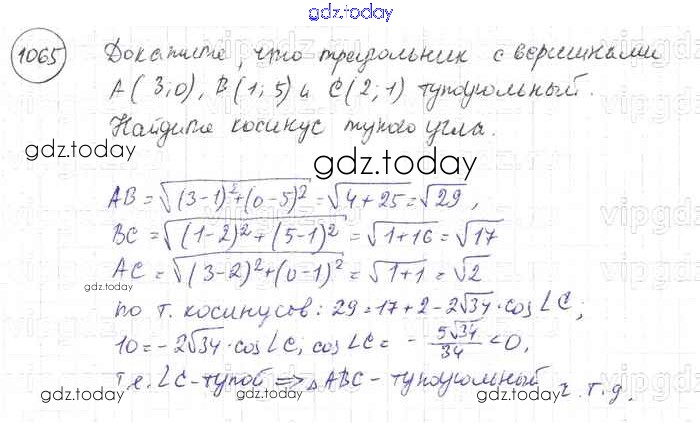 gdz.today
1065 Докажите, что треугольник с вершинами
A(3;0), B(1;5) и C(2;1) тупоугольный.
Найдите косинус тупого угла.
gdz.today
gdz.today
AB = √(3-1)²+(0-5)² = √4+25 = √29,
BC = √(1-2)²+(5-1)² = √1+16 = √17
AC = √(3-2)²+(0-1)² = √1+1 = √2
gdz.today
по т. косинусов: 29=17+2-2√34·cos∠C;
gdz.today
10=-2√34·cos∠C; cos∠C = -5√34/34 <0,
т.е. ∠C-тупой ⇒ △ABC-тупоугольный
ч.т.д.
gdz.today
gdz.today